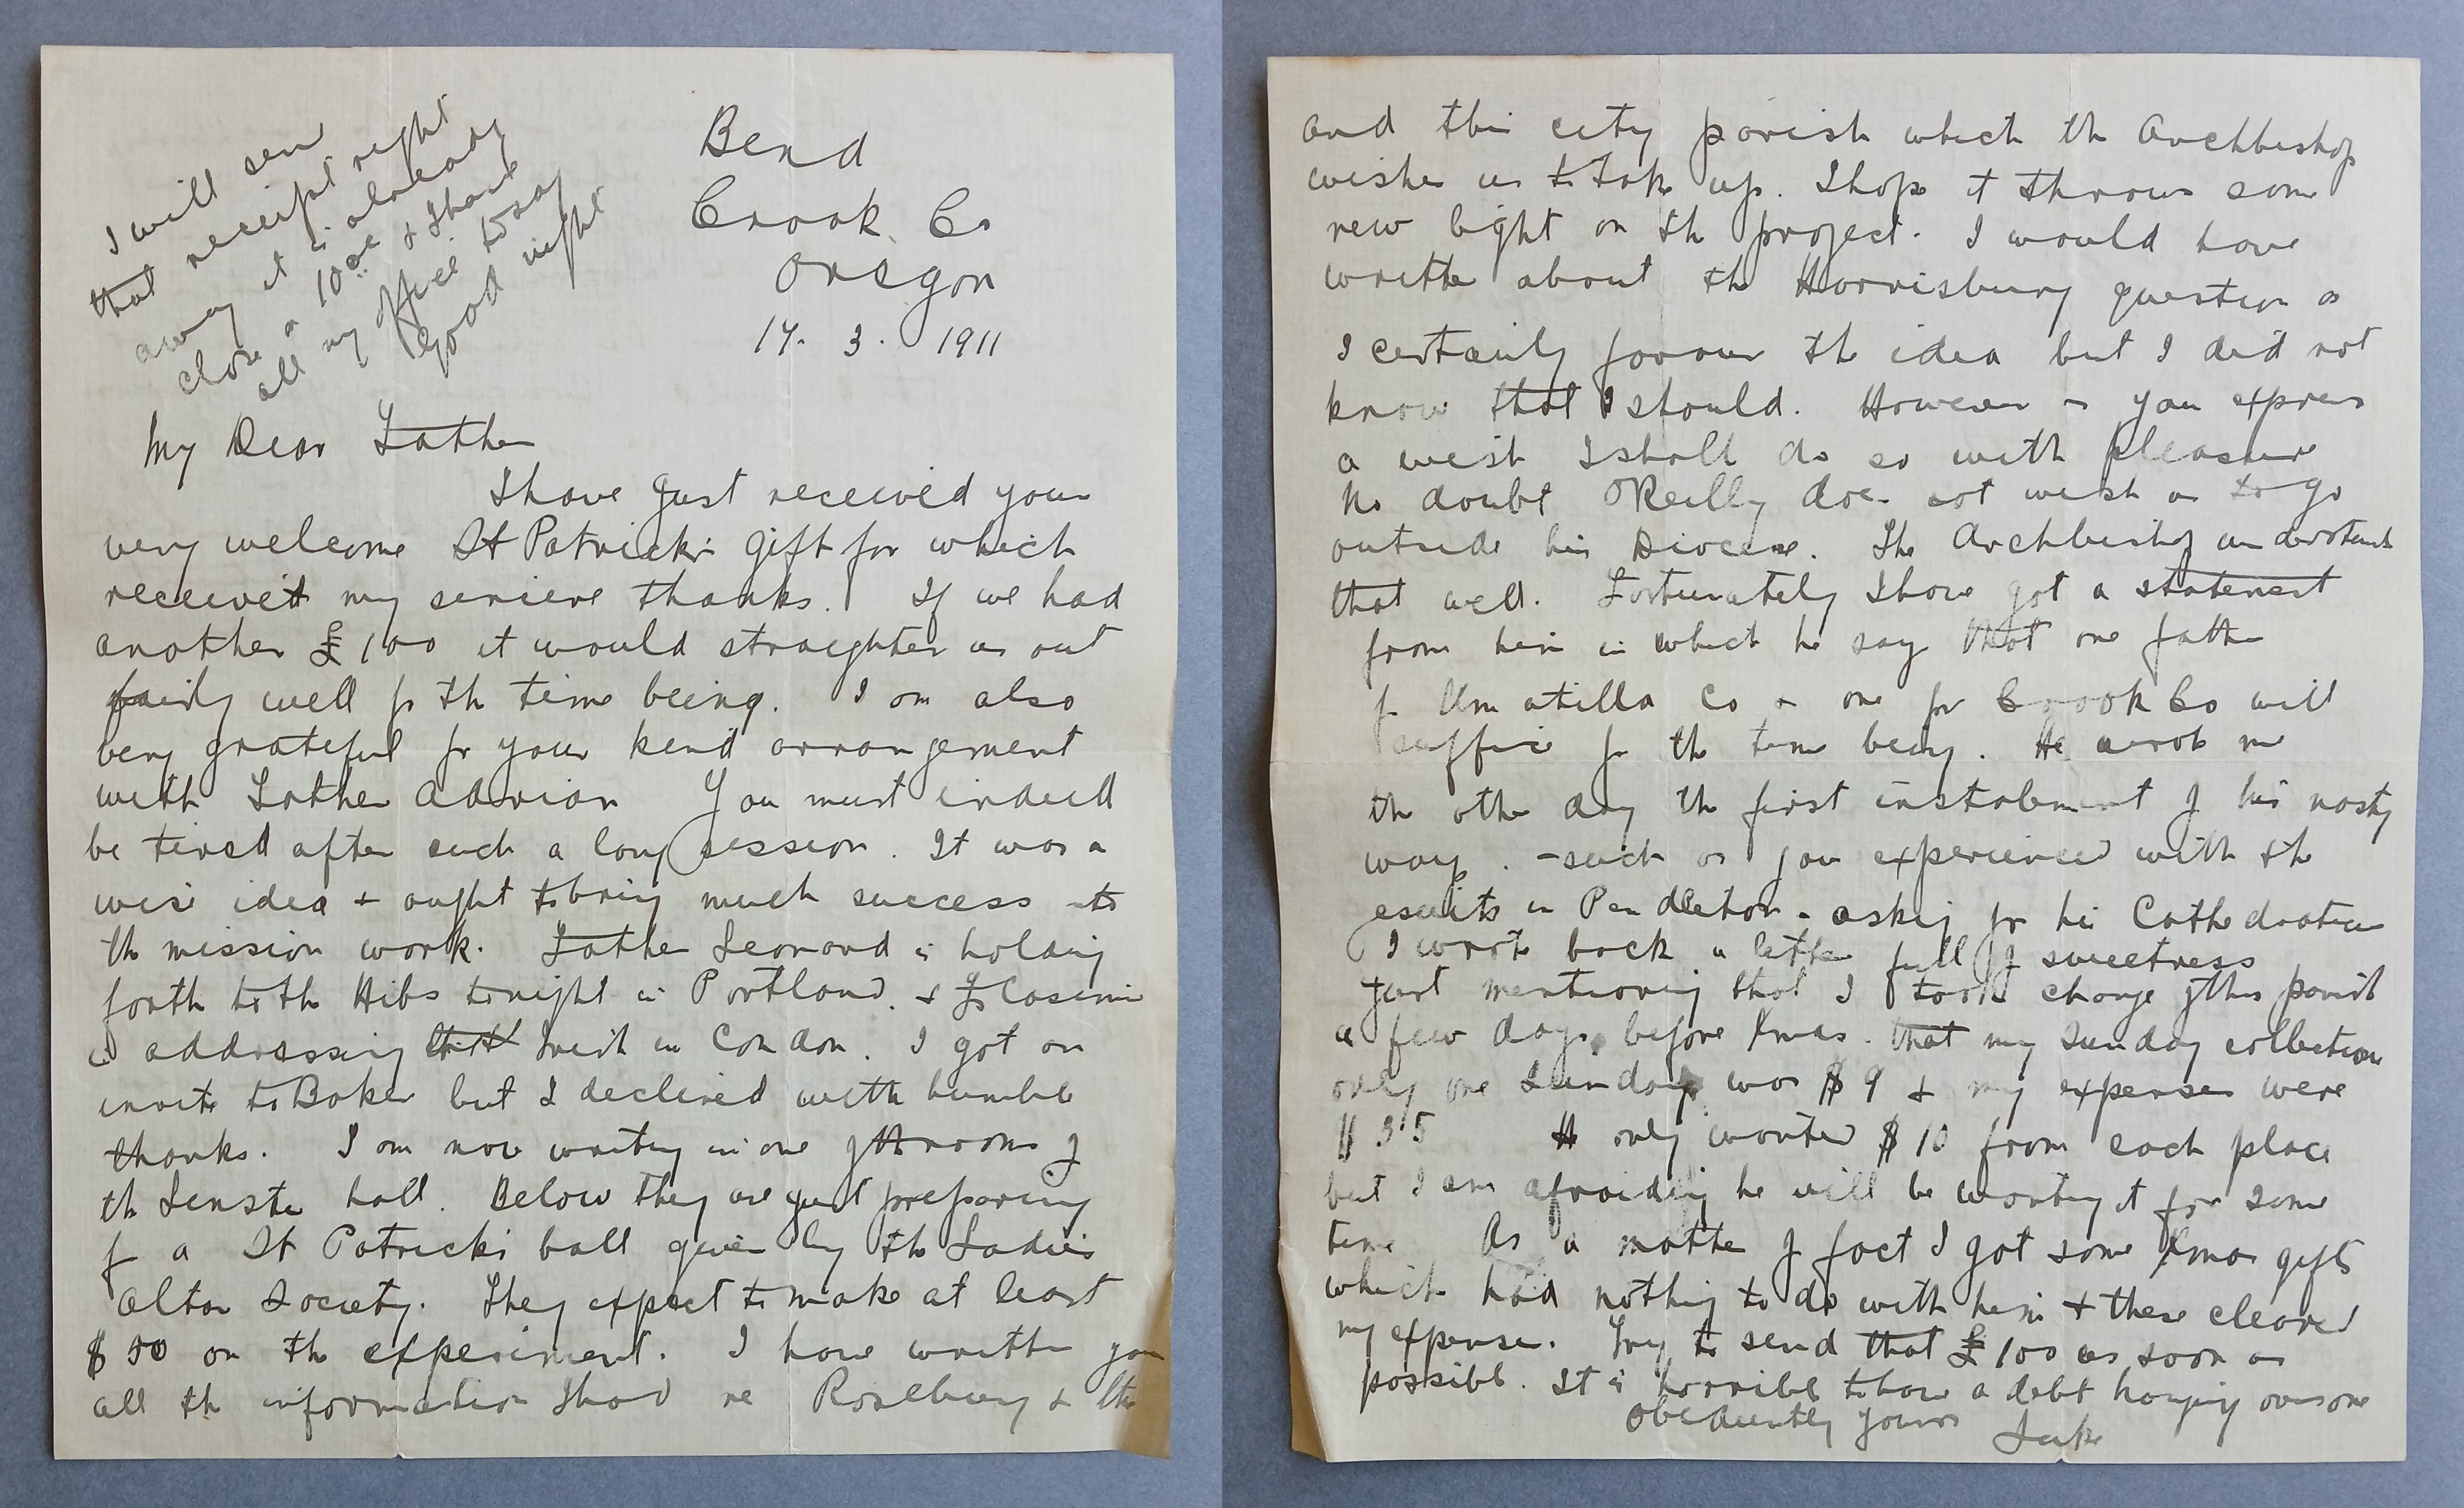 I will sen
that receipt right
away it is already
close a 10 oc & I have
all my office to say
Good night
Bend
Crook Co
Oregon
17. 3. 1911
My Dear Father
I have just received your
very welcome St Patrick's gift for which
receive my sincere thanks. If we had
another £100 it would straighten us out
fairly well fr th time being. I am also
very grateful fr your kind arrangement
with Father Adrian You must indeed
be tired after such a long session. It was a
wise idea & ought to bring much success to
th mission work. Father Leonard is holding
forth to th Hibs tonight in Portland. & Fr Casimir
is addressing Irish in Condon. I got an
invite to Baker but I declined with humble
thanks. I am now writing in one of th rooms of
th Linster hall. Below they are just preparing
f a St Patrick's ball given by th Ladies
Altar Society. They expect to make at least
$50 on th experiment. I have written you
all th information I had re Roseburg & the
and this city parish which th Archbishop
wishes us to take up. I hope it throws some
new light on th project. I would have
written about th Harrisburg question as
I certainly favour th idea but I did not
know that I should. However as you express
a wish I shall do so with pleasure
No doubt O'Reilly does not wish us to go
outside his Diocese. The Archbishop understands
that well. Fortunately I have got a statement
from him in which he says that one father
f Umatilla Co & one for Crook Co will
suffice fr th time being. He wrote me
th other day th first instalement of his nasty
ways. - such as you experienced with the
Jesuits in Pendleton - asking fr his Cathedraticum
I wrote back a letter full of sweetness
just mentioning that I took charge of this parish
a few days before Xmas. that my Sunday collection
only one Sunday was $9 & my expenses were
$35 H only wanted $10 from each place
but I am afraid he will be wanting it for some
time As a matter of fact I got some Xmas gifts
which had nothing to do with him & these cleared
my expenses. Try to send that £100 as soon as
possible. It is horrible to have a debt hanging over one
Obediently yours Luke